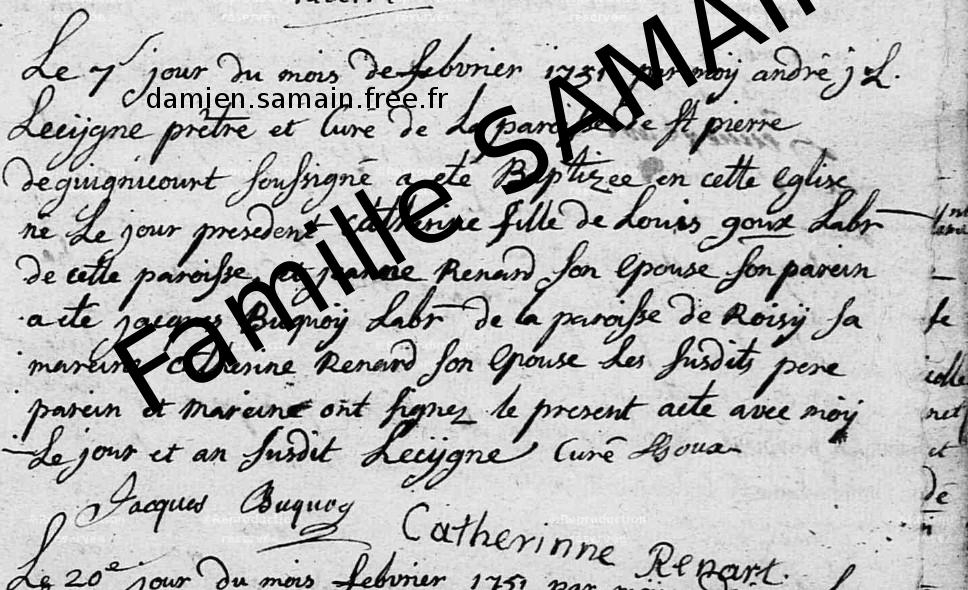 Le 7e jour du mois de febvrier 1751 par moy andré j L.
damjen.samain.free.fr
Leciÿgne prètre et Curé de La paroisse de st pierre
deguignicourt soussigné a eté Baptizee en cette eglise
ne Le jour presedent Catherine fille de Louis goux Labr
de cette paroisse et jeanne Renard son epouse son parein
a ete jacques Buquoÿ Labr de la paroisse de Roisÿ sa
mareine Catherine Renard son epouse Les susdits pere
parein et mareine ont signez le present acte avec moÿ
Le jour et an susdit Leciÿgne Curé LGoux
Jacques Buquoy
Catherinne Renart.
Le 20e jour du mois febvrier 1751 par
Famille SAMAIN